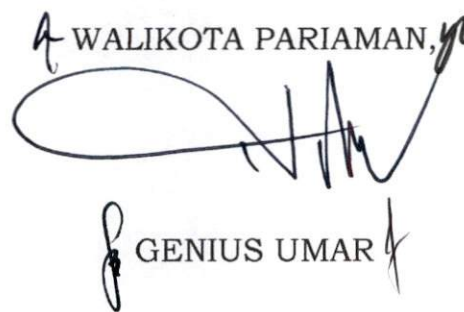 WALIKOTA PARIAMAN,
GENIUS UMAR